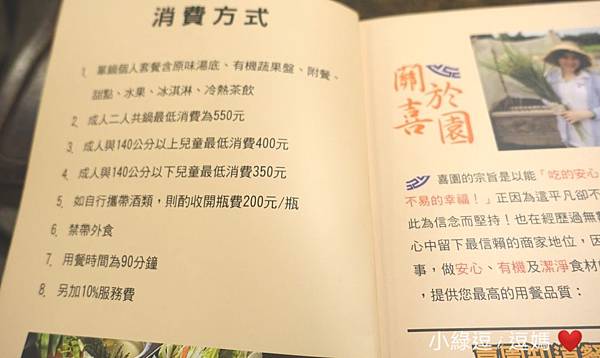 消費方式
1. 單鍋個人套餐含原味湯底、有機蔬果盤、附餐、
甜點、水果、冰淇淋、冷熱茶飲
2. 成人二人共鍋最低消費為550元
3. 成人與140公分以上兒童最低消費400元
4. 成人與140公分以下兒童最低消費350元
5. 如自行攜帶酒類，則酌收開瓶費200元/瓶
6. 禁帶外食
7. 用餐時間為90分鐘
8. 另加10%服務費
關於
喜園
喜園的宗旨是以能「吃的安心
不易的幸福！」正因為這平凡卻不
此為信念而堅持！也在經歷過無
心中留下最信賴的商家地位，因
事，做安心、有機及潔淨食材
，提供您最高的用餐品質：
小綠逗 / 逗媽